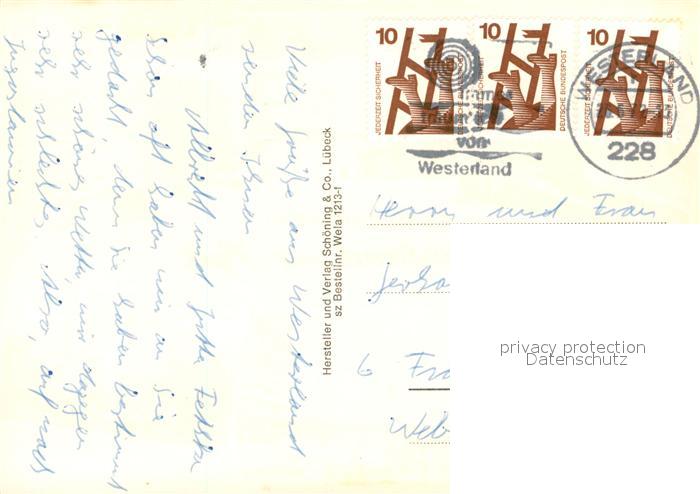 Viele Grüße aus Westerland
senden Ihnen
Albrecht und Jutta
Schon oft haben wir an Sie
gedacht, denn Sie haben bestimmt
sehr schönes Wetter, wir dagegen
sehr schlechtes. Also, auf nach
Jugoslawien
Hersteller und Verlag Schöning & Co., Lübeck
sz Bestellnr. Wela 1213-1
10
JEDERZEIT SICHERHEIT
10
DEUTSCHE BUNDESPOST
10
JEDERZEIT SICHERHEIT
DEUTSCHE BUNDESPOST
von
Westerland
WESTERLAND
228
Herrn und Frau
6 Fra
privacy protection
Datenschutz